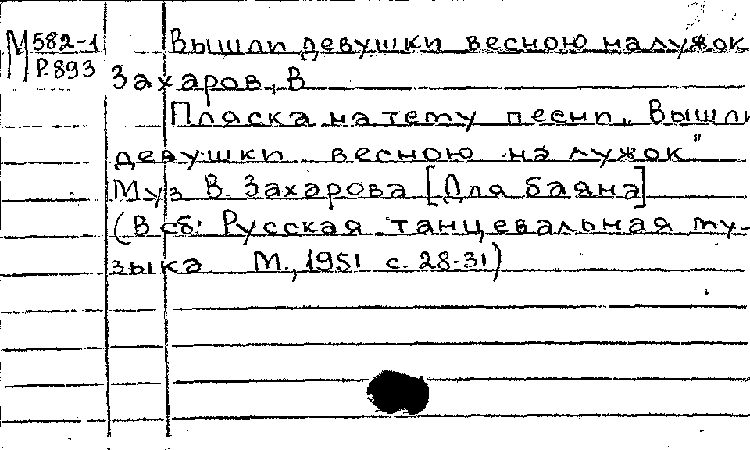 М 582-1 Вышли девушки весною на лужок
Р.893
Захаров, В
Пляска на тему песни „Вышли
девушки весною на лужок"
Муз В. Захарова [Для баяна]
(В сб: Русская танцевальная му-
зыка М., 1951 с. 28-31)